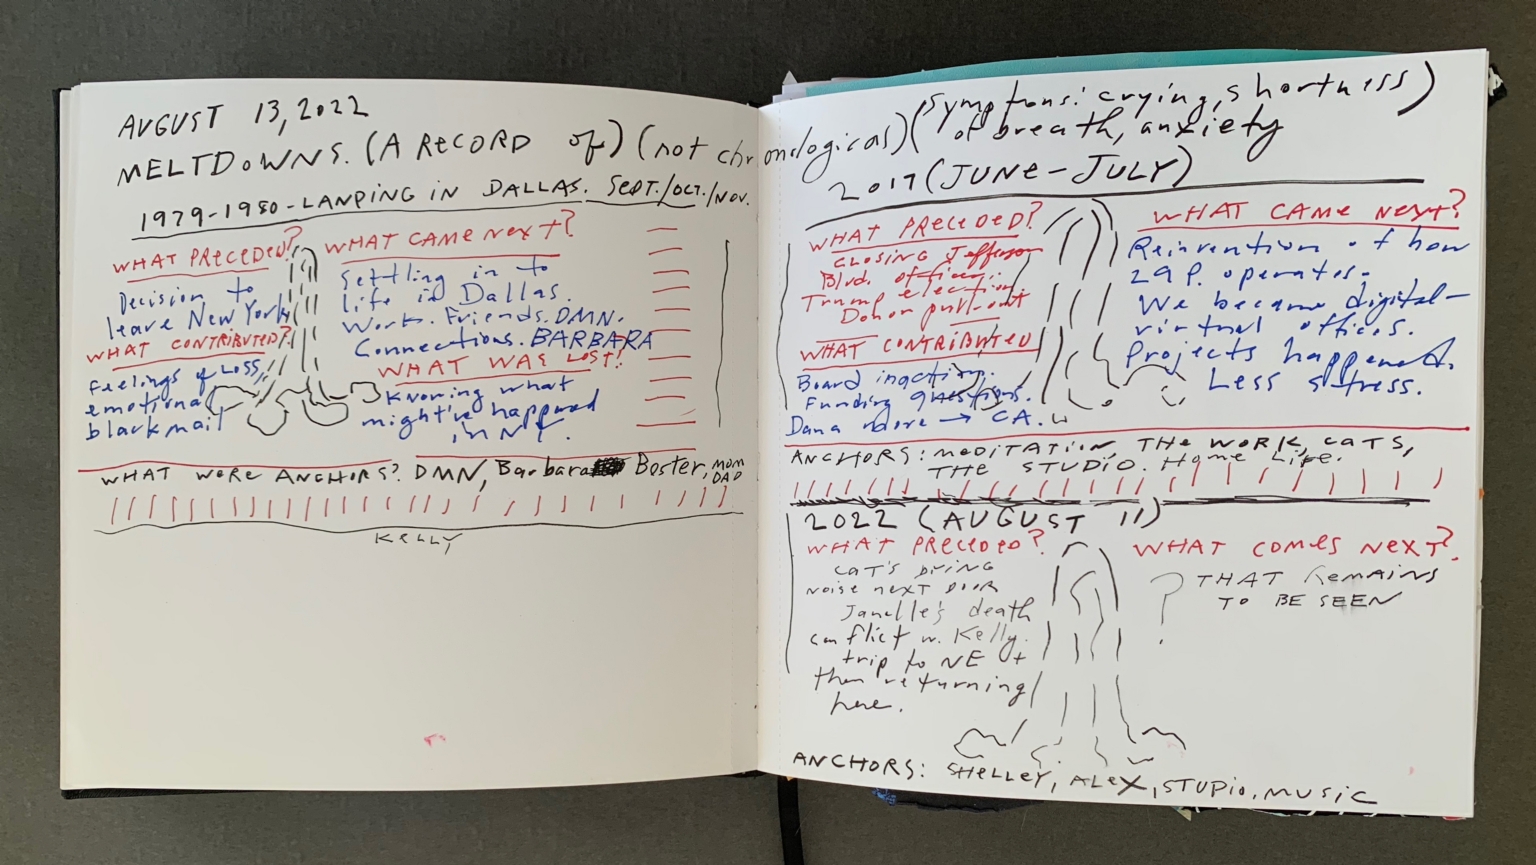 AUGUST 13, 2022
MELTDOWNS. (A RECORD of) (not chronological) (Symptoms: crying, shortness of breath, anxiety)
1979-1980-LANDING IN DALLAS. SEPT./OCT./NOV.
WHAT PRECEDED?
Decision to
leave New York
WHAT CONTRIBUTED?
Feelings of Loss,
emotional
blackmail
WHAT CAME NEXT?
Settling in to
life in Dallas.
Work. Friends. DMN.
Connections. BARBARA
WHAT WAS LOST?
Knowing what
might've happened
in NY.
WHAT WERE ANCHORS? DMN, Barbara Boster, MOM
DAD
KELLY
2017 (JUNE-JULY)
WHAT PRECEDED?
CLOSING Jefferson
Blvd. office.
Trump election
Donor pull-out
WHAT CONTRIBUTED
Board inaction.
Funding questions.
Dana move → CA.
WHAT CAME NEXT?
Reinvention of how
29P. operates.
We became digital-
virtual offices.
Projects happened.
Less stress.
ANCHORS: MEDITATION, THE WORK, CATS,
THE STUDIO. Home Life.
2022 (AUGUST 11)
WHAT PRECEDED?
CAT'S DYING
NOISE NEXT DOOR
Janelle's death
conflict w. Kelly.
trip to NE +
then returning
here.
WHAT COMES NEXT?
? THAT REMAINS
TO BE SEEN
ANCHORS: SHELLEY, ALEX, STUDIO, MUSIC